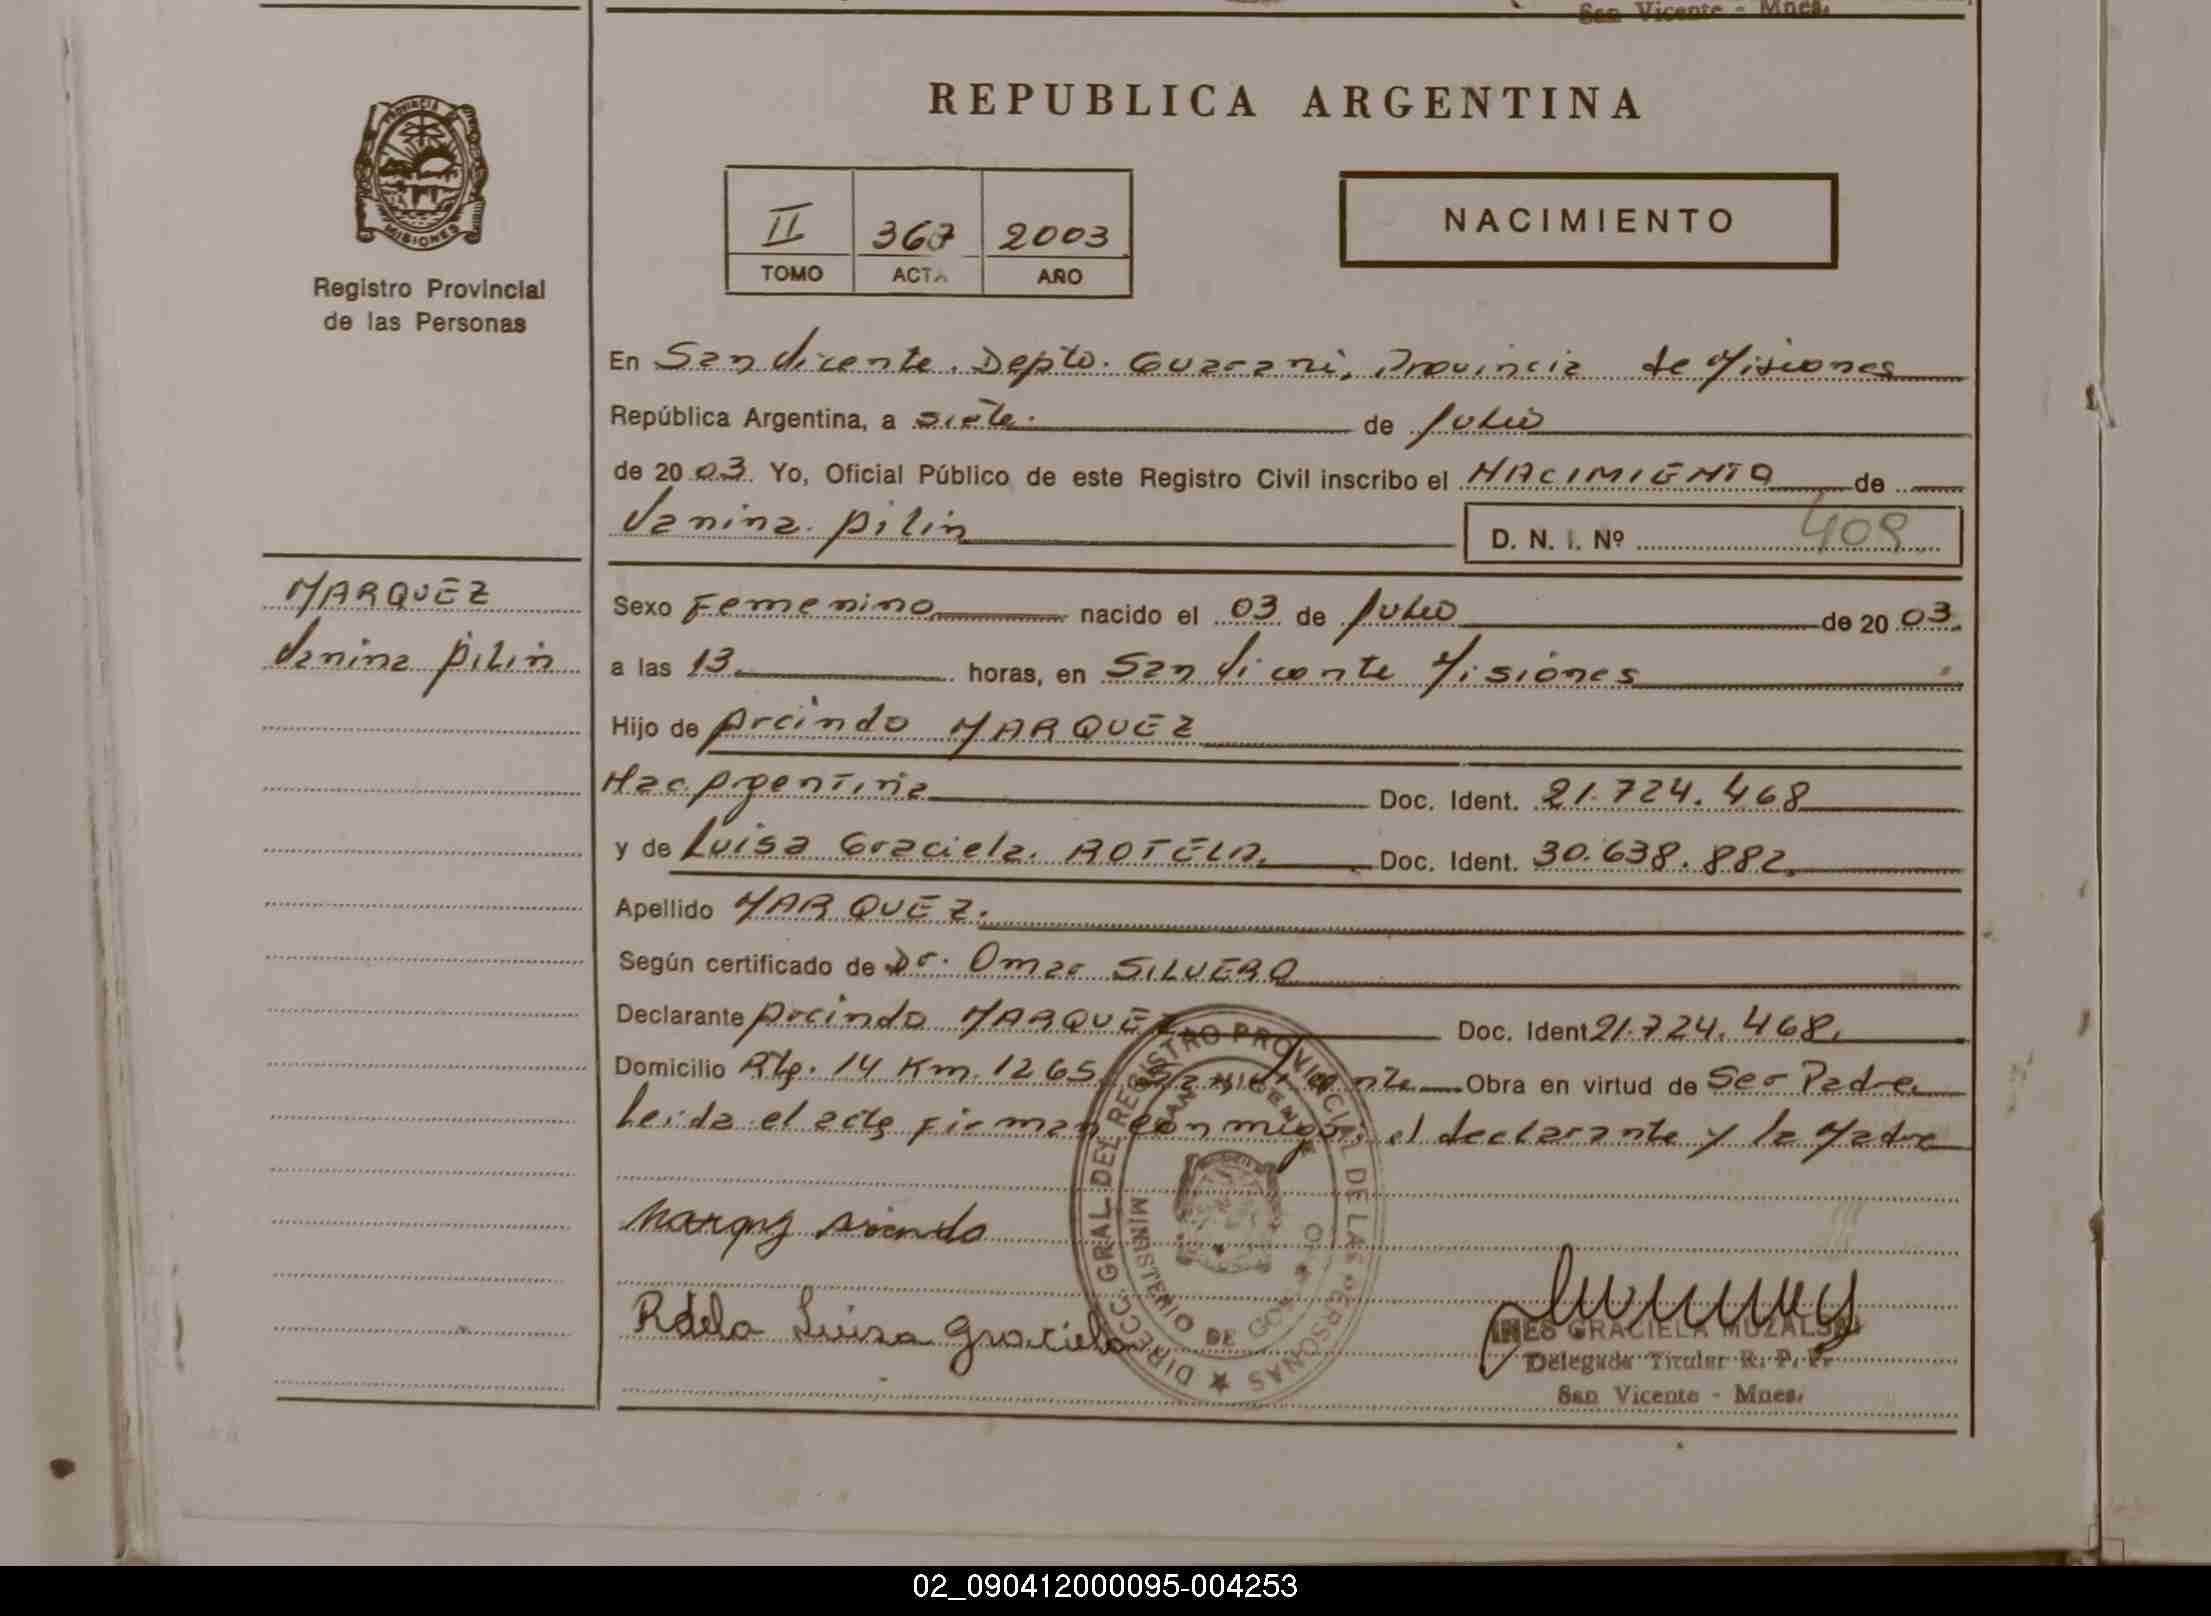 San Vicente - Mnes.
REPUBLICA ARGENTINA
PROVINCIA DE
MISIONES
Registro Provincial
de las Personas
II 367 2003
TOMO ACTA AÑO
NACIMIENTO
En San Vicente. Depto. Guarani, Provincia de Misiones
República Argentina, a siete. de Julio
de 2003. Yo, Oficial Público de este Registro Civil inscribo el NACIMIENTO de
Vanina Pilin
D. N. I. Nº 409
MARQUEZ
Vanina Pilin
Sexo Femenino nacido el 03 de Julio de 2003.
a las 13 horas, en San Vicente Misiones
Hijo de Arcindo MARQUEZ
Nac Argentina Doc. Ident. 21.724.468
y de Luisa Graciela. ROTELA. Doc. Ident. 30.638.882.
Apellido MARQUEZ.
Según certificado de Dr. Omar SILVERO
Declarante Arcindo MARQUEZ Doc. Ident 21.724.468.
Domicilio Rta. 14 Km. 1265 San Vicente Obra en virtud de Ser Padre
Leida el acta firman conmigo; el declarante y la Madre
Marquez Arcindo
Rotela Luisa Graciela
DIRECC. GRAL. DEL REGISTRO PROVINCIAL DE LAS PERSONAS
MINISTERIO DE GOB
SAN VICENTE
INES GRACIELA MUZALSKI
Delegada Titular R. P. P.
San Vicente - Mnes.
02_090412000095-004253